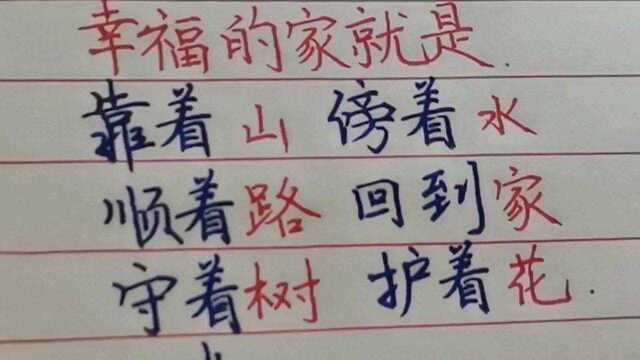 幸福的家就是.
靠着山 傍着水
顺着路 回到家
守着树 护着花.